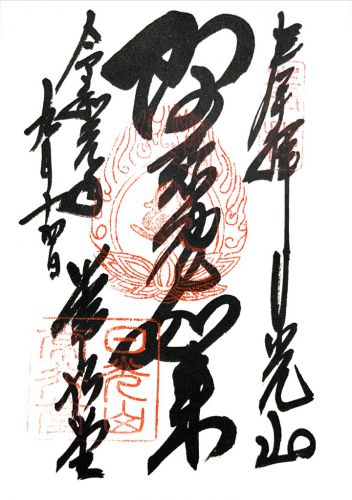 奉拝 日光山
阿弥陀如来
令和元年
九月十四日
常行堂
日光山